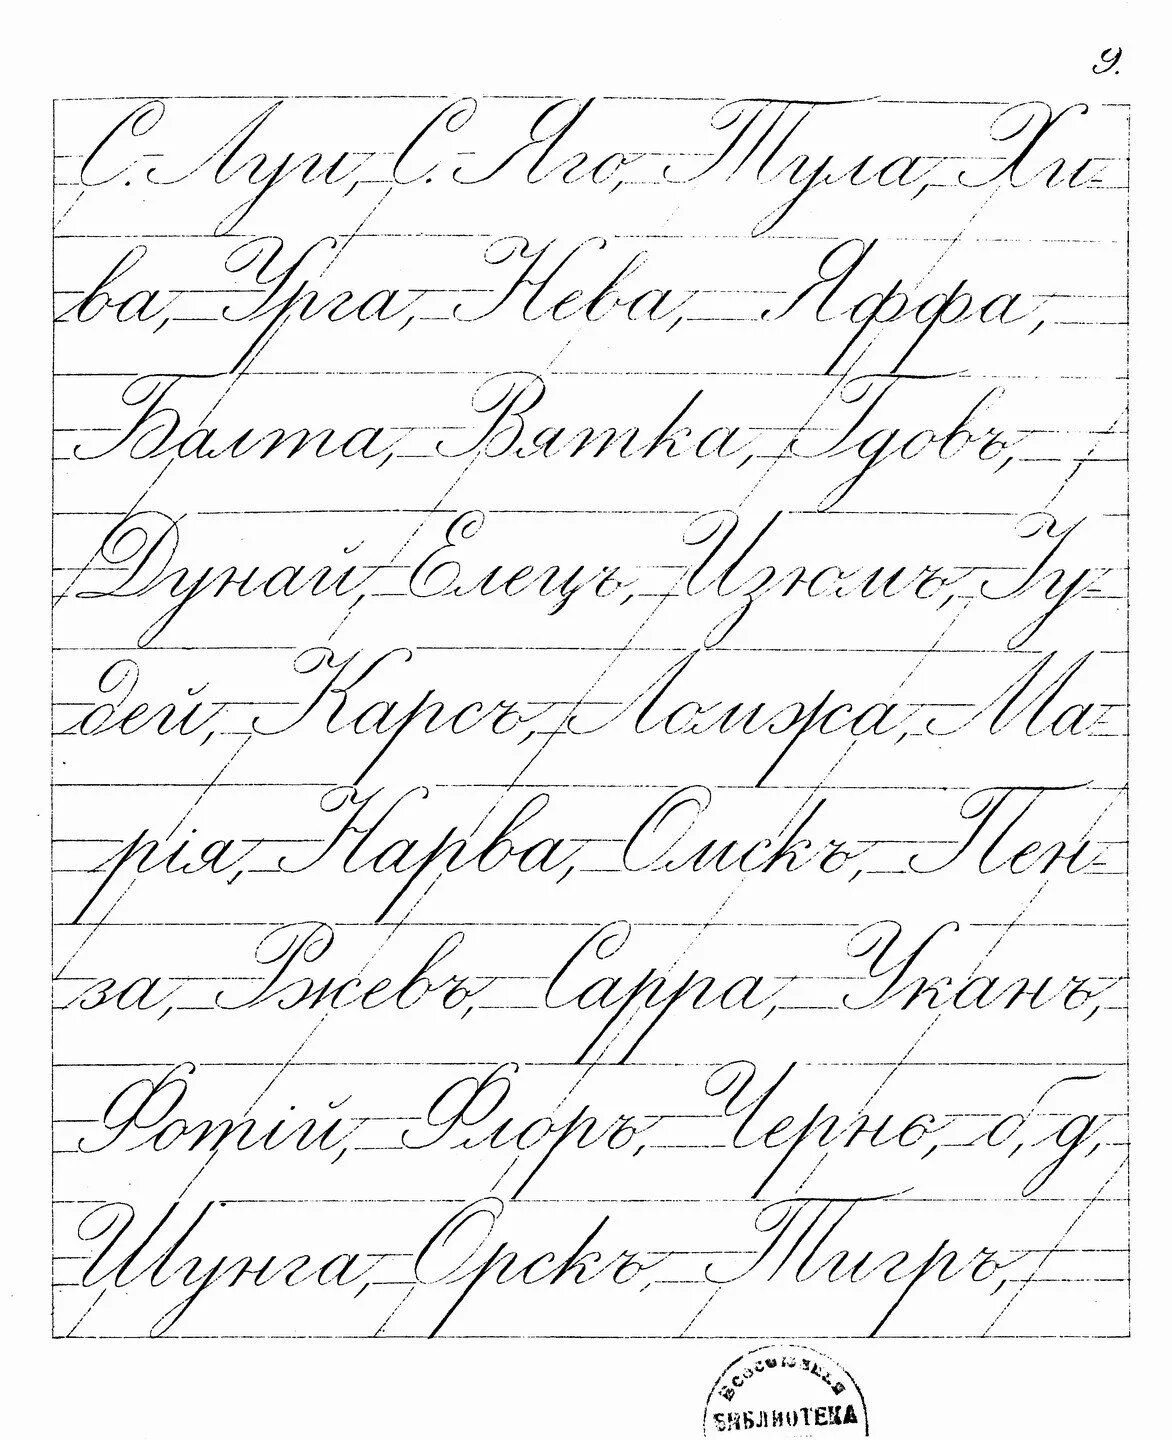 9.
С. Луи, С. Яго, Тула, Хи-
ва, Урга, Нева, Яффа,
Балта, Вятка, Гдовъ,
Дунай, Елецъ, Изюмъ, Іу-
дей, Карсъ, Ломжа, Ма-
рія, Нарва, Омскъ, Пен-
за, Ржевъ, Сарра, Уканъ,
Фотій, Флоръ, Чернь, б, д,
Шунга, Орскъ, Тигръ,
ВСЕСОЮЗНАЯ
БИБЛИОТЕКА